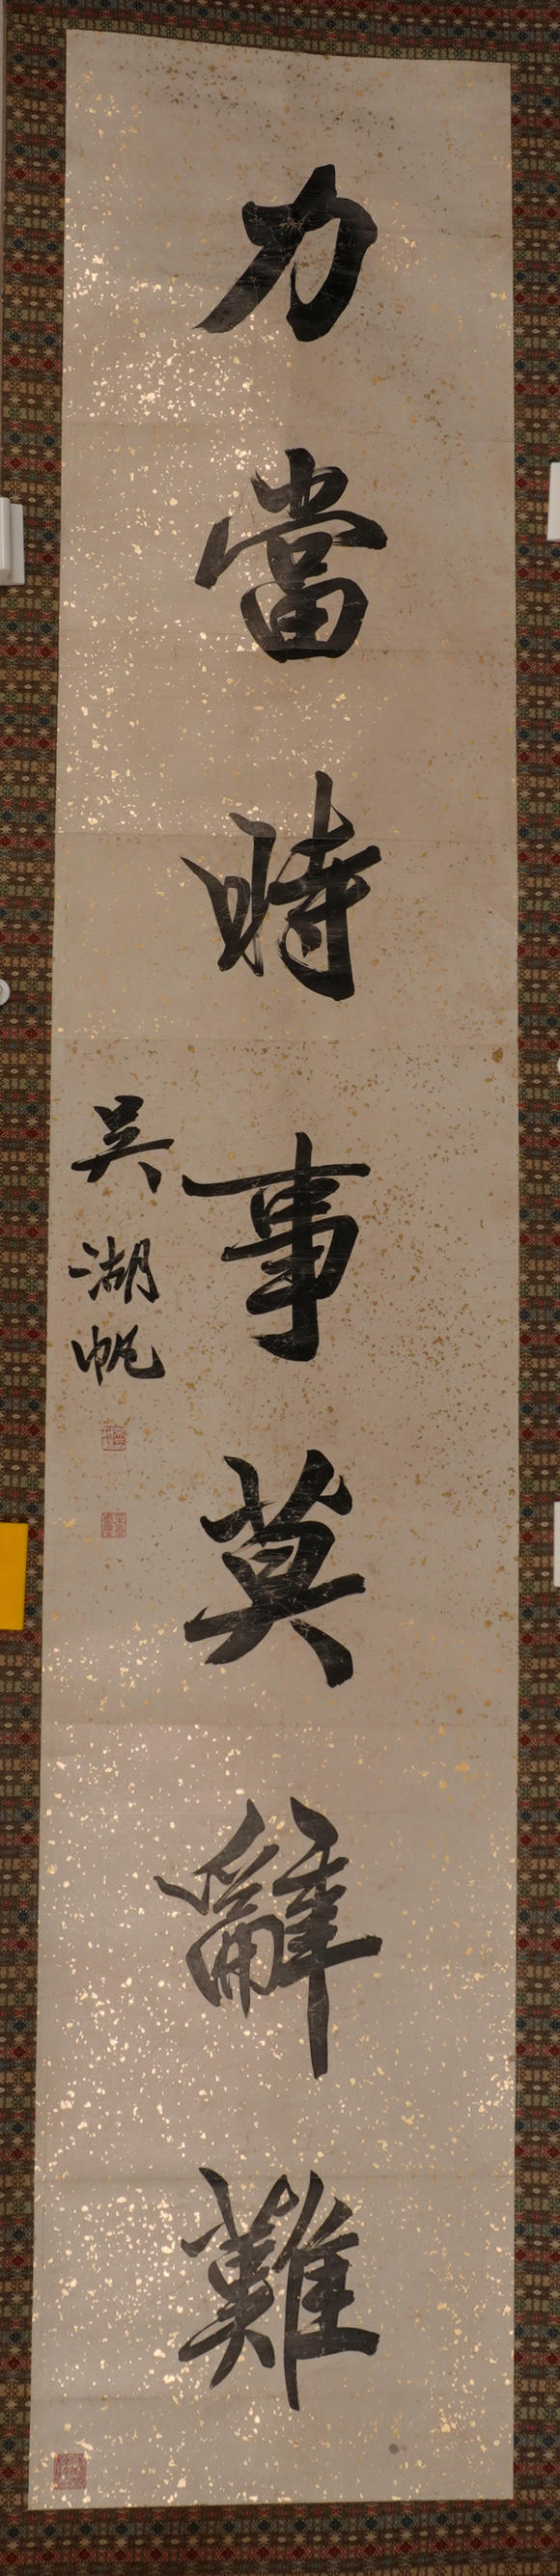 力當時事莫辭難
吳湖帆